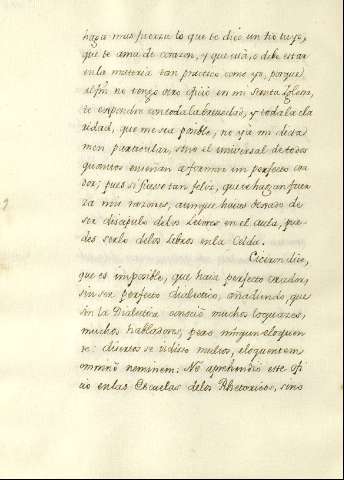 haga mas fuerza lo que te dice un tio tuyo,
que te ama de corazon, y que està, o debe estar
en la materia tan practico como yo, porque
al fin no tengo otro oficio en mi Santa Iglesia,
te responderè con toda la brevedad, y toda la cla
ridad, que me sea posible, no ya mi dicta
men particular, sino el universal de todos
quantos enseñan a formar un perfecto ora
dor; pues si fuese tan feliz, que te hagan fuer
za mis razones, aunque haias dexado de
ser discipulo delos Lectores en el aula, pue
des serlo delos Libros enla Celda.
Ciceron dice,
que es imposible, que haia perfecto orador,
sin ser perfecto dialectico, añadiendo, que
sin la Dialectica conociò muchos loquaces,
muchos habladores, pero ningun eloquen
te: disertos se vidisse multos, eloquentem
omninò neminem. No aprehendiò este ofi
cio enlas Escuelas delos Rhetoricos, sino